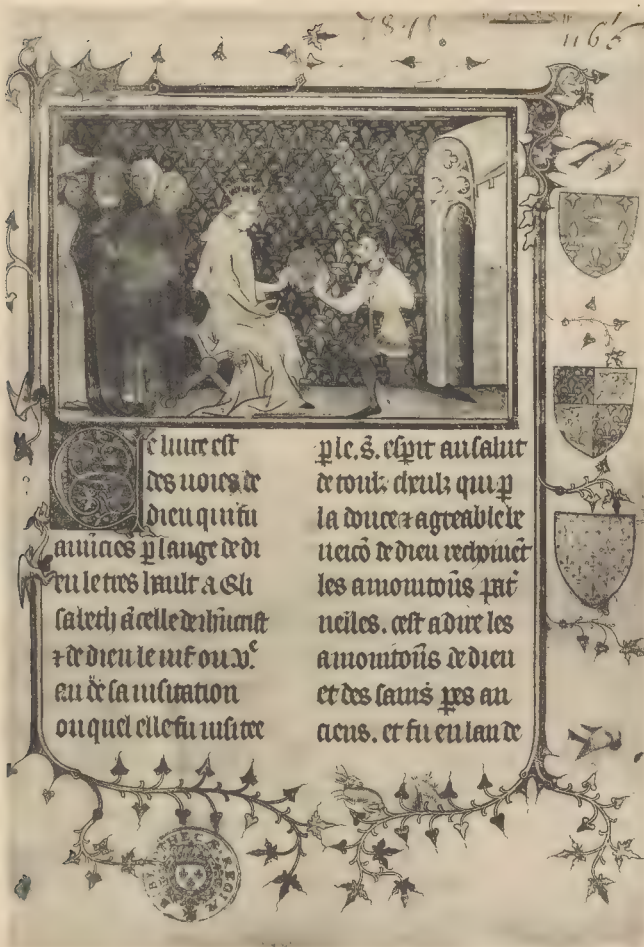 7848.
1166
Ce liure est
des uoies de
dieu qui fu
āuīcies ꝑ lange de di
eu le tres hault a Eli
sabeth ācelle de ihūcrist
⁊ de dieu le uif ou .v.ᵉ
an de sa uisitation
ou quel elle fu uisitee
ꝑ le .s̄. espit au salut
de toutꝫ ceulꝫ qui ꝑ
la douce ⁊ agreable le
ueicō de dieu recoiuēt
les amonitoūs pat̄
neiles. cest a dire les
amonitoūs de dieu
et des sains p̄es an
ciens. et fu en lan de